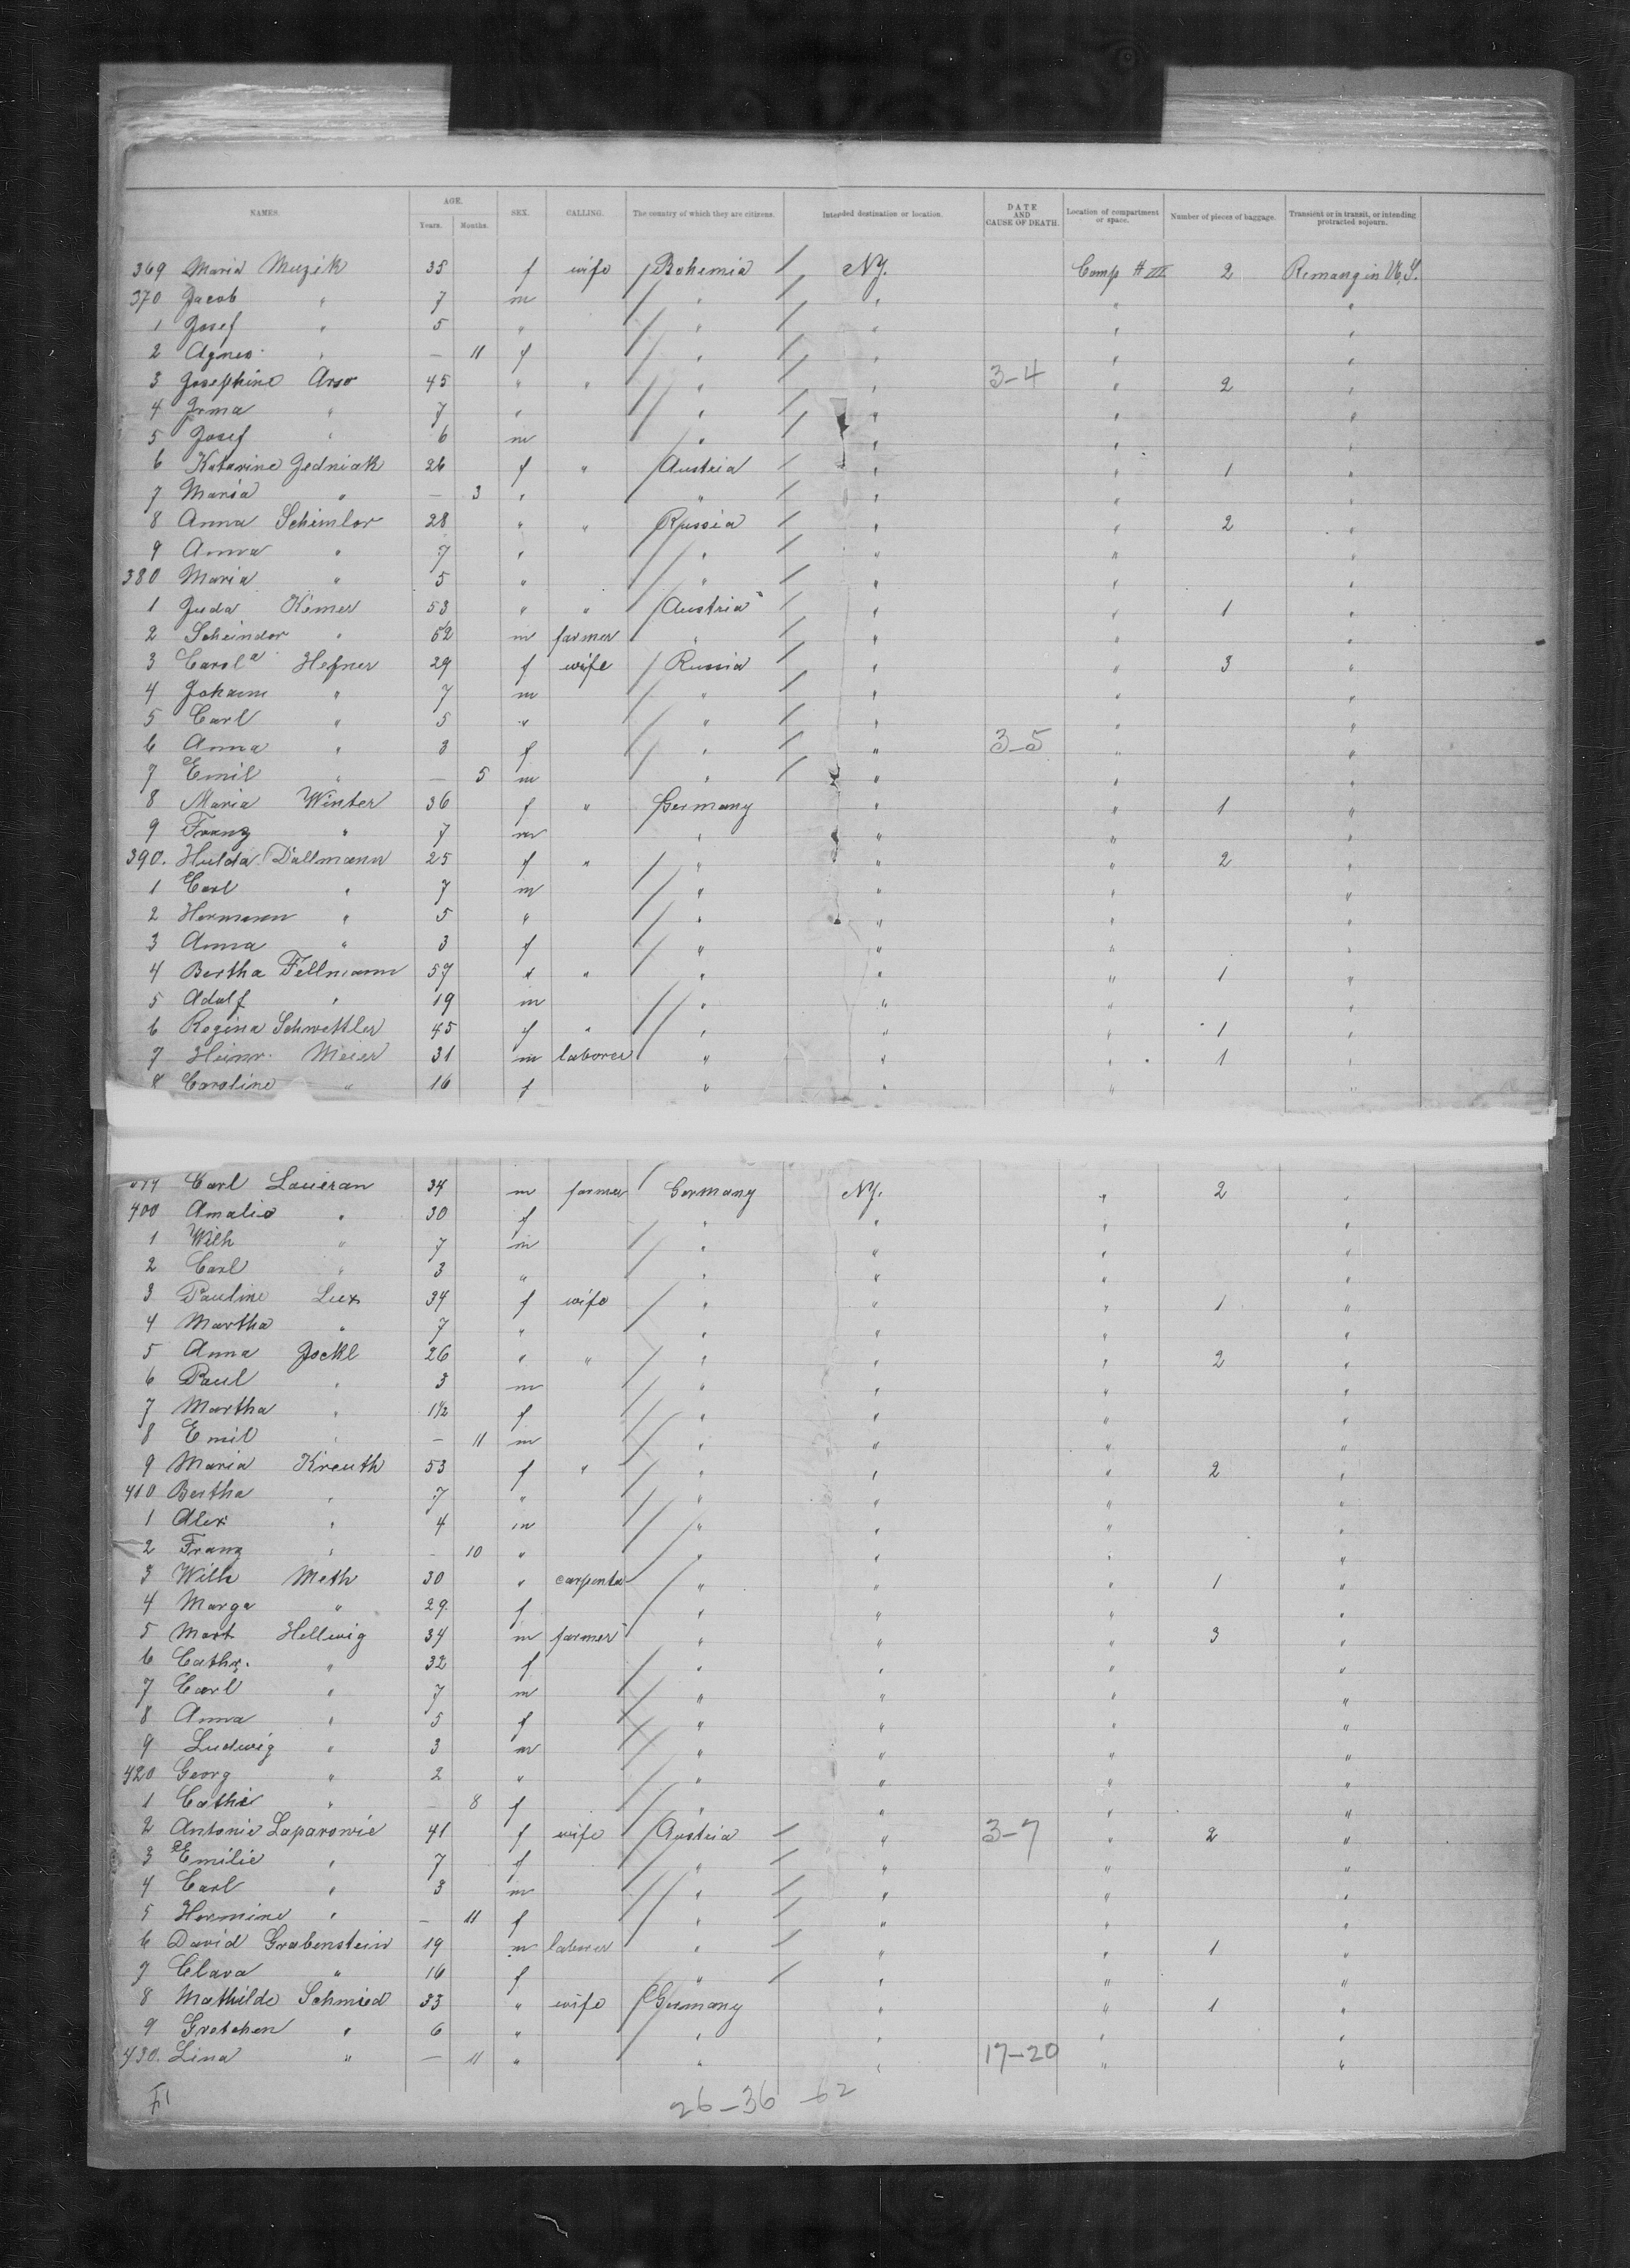 NAMES. AGE. Years. Months. SEX. CALLING. The country of which they are citizens. Intended destination or location. DATE AND CAUSE OF DEATH. Location of compartment or space. Number of pieces of baggage. Transient or in transit, or intending protracted sojourn.
369 Maria Muzik 35 f wife Bohemia NY. Comp # III 2 Remang in U.S.
370 Jacob " 7 m " " " "
1 Josef " 5 " " " " "
2 Agnes " — 11 f " " " "
3 Josephine 45 " " " " 3-4 " 2 "
4 Irma " 7 " " " " "
5 Josef " 6 m " " " "
6 Katarine Jedniak 26 f " Austria " " 1 "
7 Maria " — 3 " " " " "
8 Anna Schimler 28 " " Russia " " 2 "
9 Anna " 7 " " " " "
380 Maria " 5 " " " " "
1 Juda Kemer 53 " " Austria " " 1 "
2 Scheindor " 52 m farmer " " " "
3 Carola Hefner 29 f wife Russia " " 3 "
4 Johann " 7 m " " " "
5 Carl " 5 " " " " "
6 Anna " 3 f " " 3-5 " "
7 Emil " — 5 m " " " "
8 Maria Winter 36 f " Germany " " 1 "
9 Franz " 7 m " " " "
390. Hulda Dallmann 25 f " " " " 2 "
1 Carl " 7 m " " " "
2 Hermann " 5 " " " " "
3 Anna " 3 f " " " "
4 Bertha Fellmann 57 " " " " " 1 "
5 Adolf " 19 m " " " "
6 Regina Schwettler 45 f " " " " 1 "
7 Heinr. Meier 31 m laborer " " " 1 "
8 Caroline " 16 f " " " "
Carl Laueran 34 m farmer Germany NY. " 2 "
400 Amalie " 30 f " " " "
1 Wilh " 7 m " " " "
2 Carl " 3 " " " " "
3 Pauline Lux 34 f wife " " " 1 "
4 Martha " 7 " " " " "
5 Anna Jockl 26 " " " " " 2 "
6 Paul " 3 m " " " "
7 Martha " 1½ f " " " "
8 Emil " — 11 m " " " "
9 Maria Kreuth 53 f " " " " 2 "
410 Bertha " 7 " " " " "
1 Alex " 4 m " " " "
2 Franz " — 10 " " " " "
3 Wilh Meth 30 " carpenter " " " 1 "
4 Marga " 29 f " " " "
5 Mart Hellwig 34 m farmer " " " 3 "
6 Cathr. " 32 f " " " "
7 Carl " 7 m " " " "
8 Anna " 5 f " " " "
9 Ludwig " 3 m " " " "
420 Georg " 2 " " " " "
1 Cathi " — 8 f " " " "
2 Antonie Laparowie 41 f wife Austria " 3-7 " 2 "
3 Emilie " 7 f " " " "
4 Carl " 3 m " " " "
5 Hermine " — 11 f " " " "
6 David Grabenstein 19 m laborer " " " 1 "
7 Clara " 16 f " " " "
8 Mathilde Schmied 33 " wife Germany " " 1 "
9 Gretchen " 6 " " " " "
430. Lina " — 11 " " " 17-20 " "
26-36-62